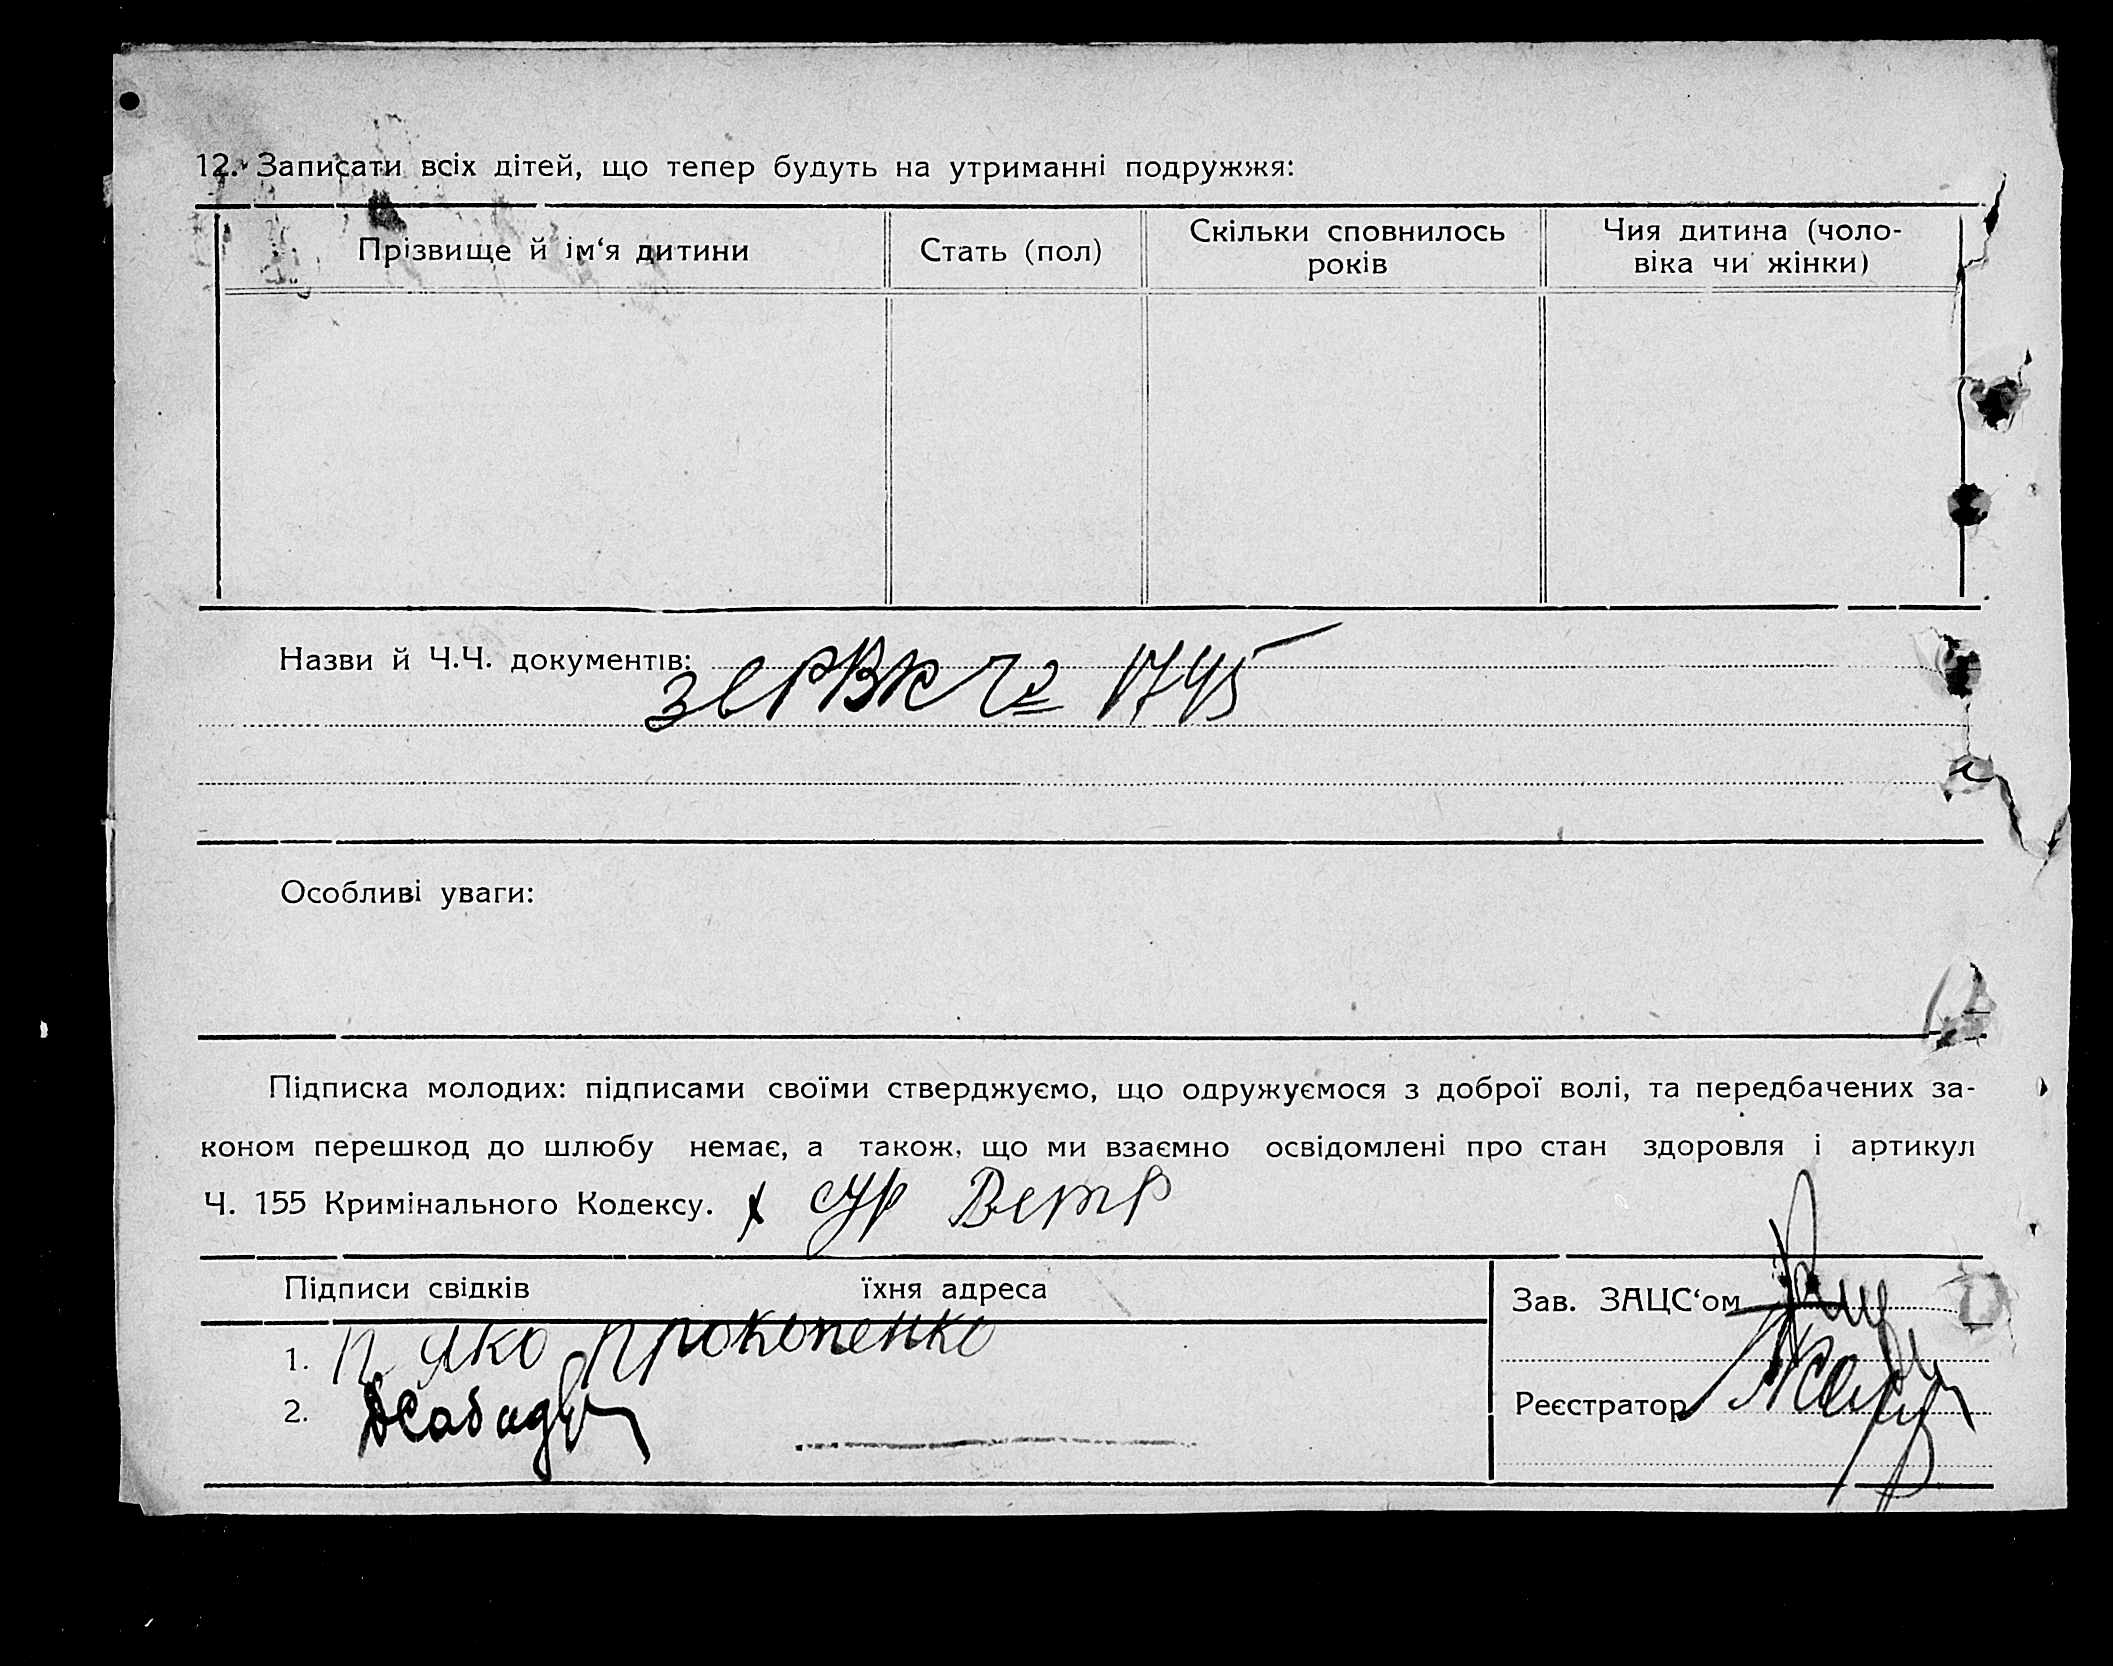 12. Записати всіх дітей, що тепер будуть на утриманні подружжя:
Прізвище й ім‘я дитини
Стать (пол)
Скільки сповнилось
років
Чия дитина (чоло-
віка чи жінки)
Назви й Ч.Ч. документів: 1745
Особливі уваги:
Підписка молодих: підписами своїми стверджуємо, що одружуємося з доброї волі, та передбачених за-
коном перешкод до шлюбу немає, а також, що ми взаємно освідомлені про стан здоровля і артикул
Ч. 155 Кримінального Кодексу.
Підписи свідків їхня адреса
1. Прокопенко
2.
Зав. ЗАЦС‘ом
Реєстратор